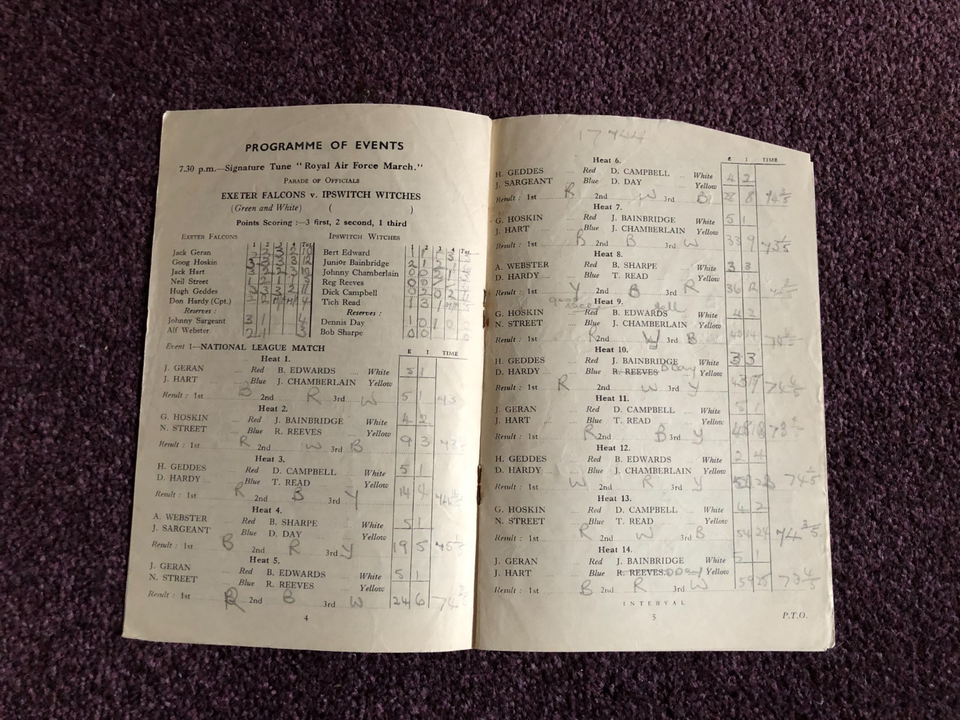 PROGRAMME OF EVENTS
7.30 p.m.—Signature Tune "Royal Air Force March."
PARADE OF OFFICIALS
EXETER FALCONS v. IPSWITCH WITCHES
(Green and White) ( )
Points Scoring :—3 first, 2 second, 1 third
EXETER FALCONS
Jack Geran
Goog Hoskin
Jack Hart
Neil Street
Hugh Geddes
Don Hardy (Cpt.)
Reserves :
Johnny Sargeant 3 1 4
Alf Webster 2 1 3
IPSWITCH WITCHES
Bert Edward
Junior Bainbridge
Johnny Chamberlain
Reg Reeves
Dick Campbell
Tich Read
Reserves :
Dennis Day
Bob Sharpe
Event 1—NATIONAL LEAGUE MATCH
Heat 1. E I TIME
J. GERAN ... Red B. EDWARDS ... White 5 1
J. HART ... Blue J. CHAMBERLAIN Yellow
Result : 1st B 2nd R 3rd W 5 1
Heat 2.
G. HOSKIN ... Red J. BAINBRIDGE White 4 2
N. STREET ... Blue R. REEVES ... Yellow
Result : 1st R 2nd W 3rd B 9 3
Heat 3.
H. GEDDES ... Red D. CAMPBELL White 5 1
D. HARDY ... Blue T. READ ... Yellow
Result : 1st R 2nd B 3rd Y 14 4
Heat 4.
A. WEBSTER ... Red B. SHARPE ... White 5 1
J. SARGEANT ... Blue D. DAY ... Yellow
Result : 1st B 2nd R 3rd Y 19 5
Heat 5.
J. GERAN ... Red B. EDWARDS ... White 5 1
N. STREET ... Blue R. REEVES ... Yellow
Result : 1st R 2nd B 3rd W 24 6
4
Heat 6. E I TIME
H. GEDDES ... Red D. CAMPBELL ... White 4 2
J. SARGEANT ... Blue D. DAY ... Yellow
Result : 1st R 2nd W 3rd B 28 8 74 2/5
Heat 7.
G. HOSKIN ... Red J. BAINBRIDGE ... White 5 1
J. HART ... Blue J. CHAMBERLAIN Yellow
Result : 1st B 2nd B 3rd W 33 9 73 1/5
Heat 8.
A. WEBSTER ... Red B. SHARPE ... White 3 3
D. HARDY ... Blue T. READ ... Yellow
Result : 1st Y 2nd B 3rd R 36 12
Heat 9.
G. HOSKIN ... Red B. EDWARDS ... White 4 2
N. STREET ... Blue J. CHAMBERLAIN Yellow
Result : 1st R 2nd W 3rd B 40 14
Heat 10.
H. GEDDES ... Red J. BAINBRIDGE ... White 3 3
D. HARDY ... Blue R. REEVES D Day Yellow
Result : 1st R 2nd W 3rd Y 43 17
Heat 11.
J. GERAN ... Red D. CAMPBELL ... White 5 1
J. HART ... Blue T. READ ... Yellow
Result : 1st R 2nd B 3rd Y 48 18
Heat 12.
H. GEDDES ... Red B. EDWARDS ... White 2 4
D. HARDY ... Blue J. CHAMBERLAIN Yellow
Result : 1st W 2nd R 3rd Y 50 22
Heat 13.
G. HOSKIN ... Red D. CAMPBELL ... White 4 2
N. STREET ... Blue T. READ ... Yellow
Result : 1st R 2nd W 3rd B 54 24 74 3/5
Heat 14.
J. GERAN ... Red J. BAINBRIDGE ... White 5 1
J. HART ... Blue R. REEVES DDay Yellow
Result : 1st B 2nd R 3rd W 59 25 73 4/5
INTERVAL
5
P.T.O.